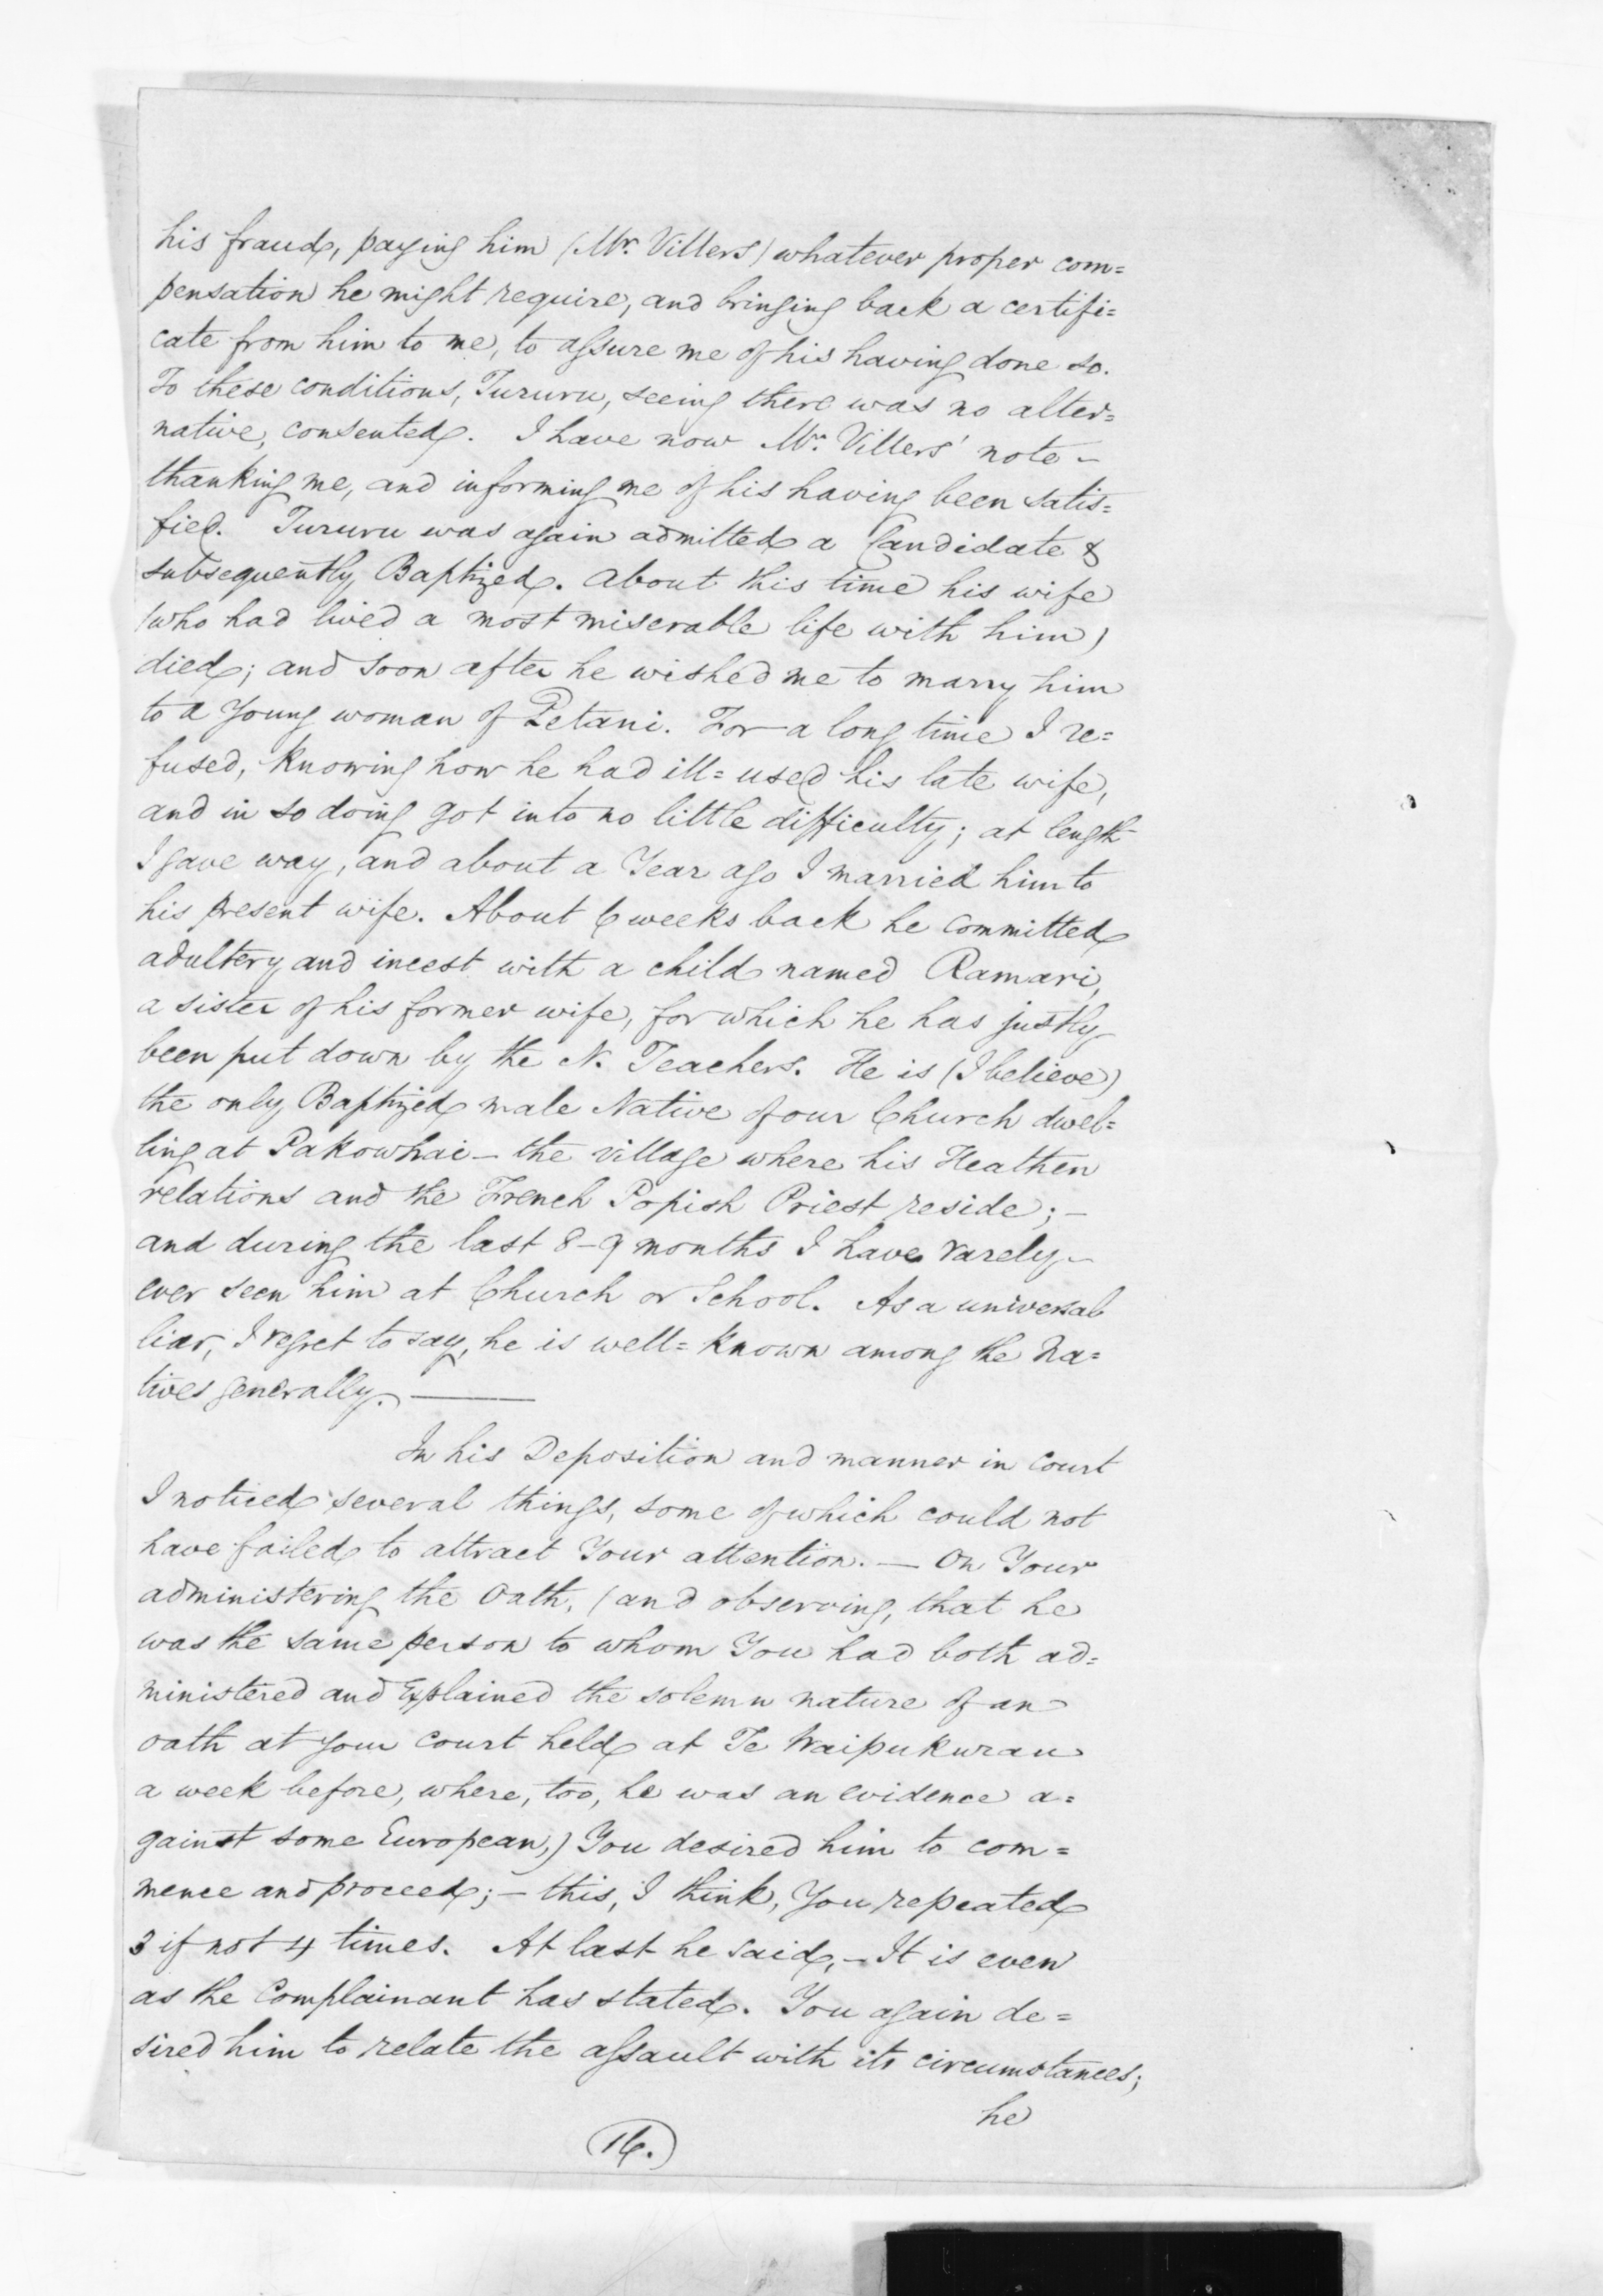 his fraud, paying him (Mr. Villers) whatever proper com=
pensation he might require, and bringing back a certifi=
cate from him to me, to assure me of his having done so.
To these conditions, Tururu, seeing there was no alter=
native, consented. I have now Mr. Villers' note –
thanking me, and informing me of his having been satis=
fied. Tururu was again admitted a Candidate &
subsequently Baptized. About this time his wife
(who had lived a most miserable life with him)
died; and soon after he wished me to marry him
to a Young woman of Petani. For a long time I re=
fused, knowing how he had ill=used his late wife,
and in so doing got into no little difficulty; at length
I gave way, and about a Year ago I married him to
his present wife. About 6 weeks back he committed
adultery and incest with a child named Ramari,
a sister of his former wife, for which he has justly
been put down by the N. Teachers. He is (I believe)
the only Baptized male Native of our Church dwel=
ling at Pakowhai – the village where his Heathen
relations and the French Popish Priest reside; –
and during the last 8–9 months I have rarely –
ever seen him at Church or School. As a universal
liar, I regret to say, he is well=known among the Na=
tives generally. ———
In his Deposition and manner in court
I noticed several things, some of which could not
have failed to attract Your attention. — On Your
administering the Oath, (and observing, that he
was the same person to whom You had both ad=
ministered and Explained the solemn nature of an
oath at your court held at Te Waipukurau
a week before, where, too, he was an evidence a=
gainst some European,) You desired him to com=
mence and proceed; – this, I think, You repeated
3 if not 4 times. At last he said, – It is even
as the Complainant has stated. You again de=
sired him to relate the assault with its circumstances;
he
16.)